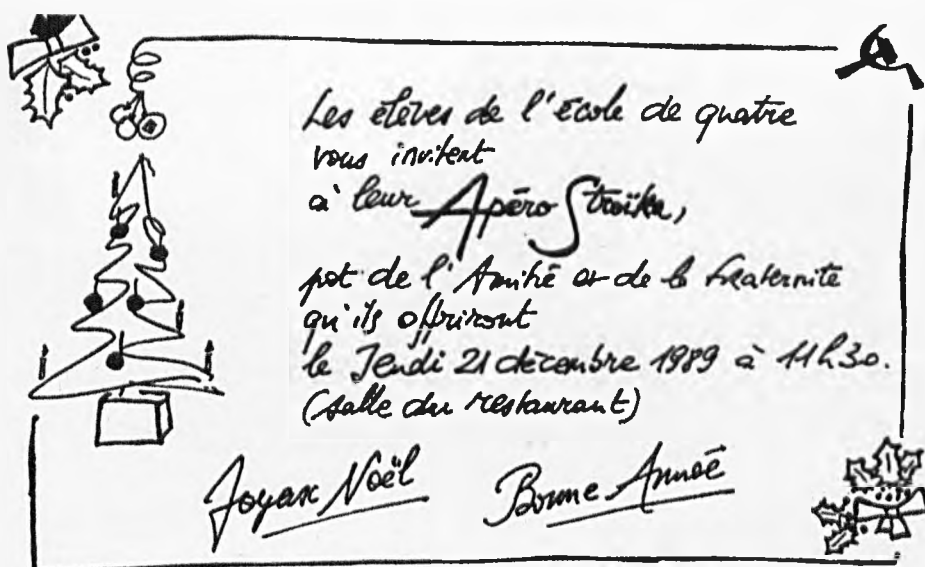 Les élèves de l'école de quatre
vous invitent
à leur Apéro Stroïka,
pot de l'Amitié et de la fraternité
qu'ils offriront
le Jeudi 21 décembre 1989 à 11h30.
(salle du restaurant)
Joyeux Noël Bonne Année